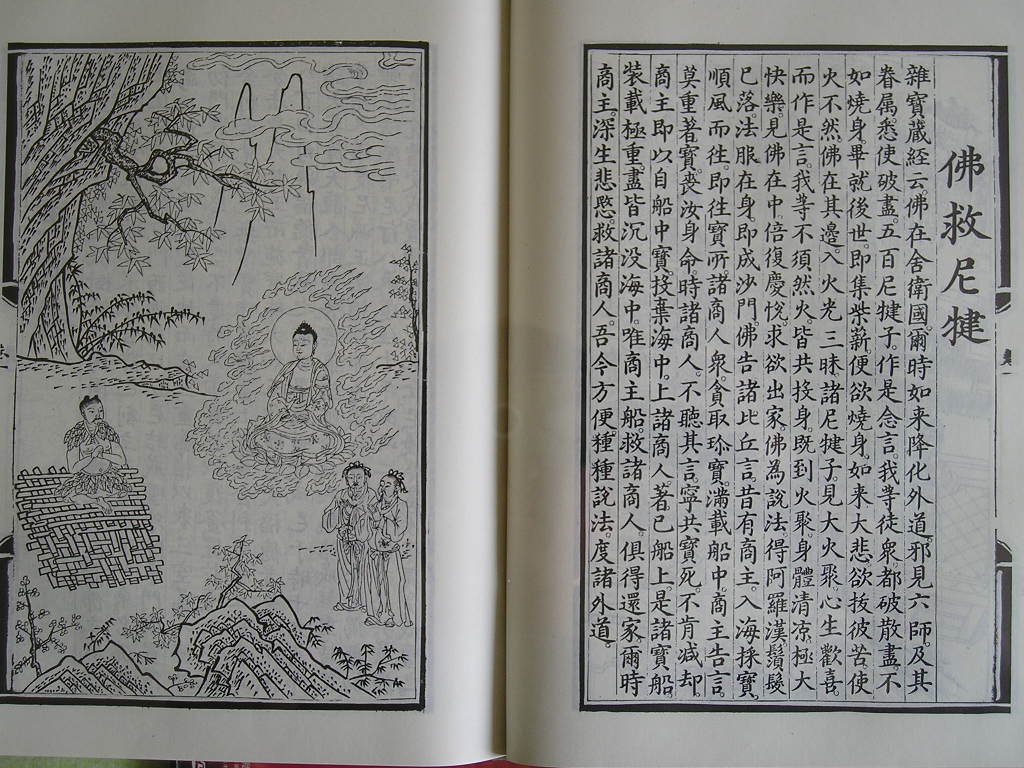 佛救尼犍
雜寶蔵経云佛在舍衛國。爾時如来降化外道。邪見六師。及其
眷属。悉使破盡。五百尼犍子作是念言。我等徒衆。都破散盡。不
如燒身畢就後世。即集柴薪。便欲燒身。如来大悲。欲拔彼苦。使
火不然。佛在其邊。入火光三昧。諸尼犍子。見大火聚。心生歡喜。
而作是言。我等不須然火。皆共投身。既到火聚。身體清凉。極大
快樂。見佛在中。倍復慶悅。求欲出家。佛為說法。得阿羅漢。鬚髮
已落。法服在身。即成沙門。佛告諸比丘言。昔有商主。入海採寶
順風而往。即往寶所。諸商人衆。貪取珎寶。滿載船中。商主告言。
莫重著寶。喪汝身命。時諸商人。不聽其言。寧共寶死。不肯减却。
商主即以自船中寶。投棄海中。上諸商人。著已船上。是諸寶船
装載極重。盡皆沉没海中。唯商主船救諸商人。俱得還家。爾時
商主。深生悲愍。救諸商人。吾今方便種種說法。度諸外道。